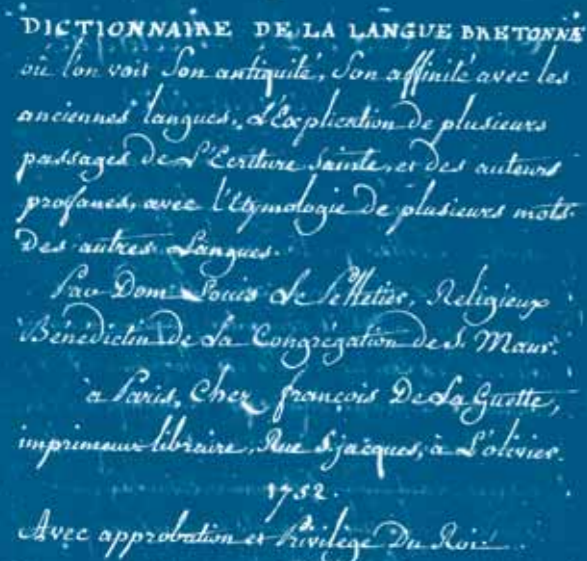 DICTIONNAIRE DE LA LANGUE BRETONNE
où l'on voit Son antiquité, Son affinité avec les
anciennes langues, L'Explication de plusieurs
passages de L'Ecriture sainte, et des auteurs
profanes, avec l'Etymologie de plusieurs mots
Des autres Langues.
Par Dom Louis Le Pelletier, Religieux
Bénédictin de La Congrégation de S. Maur.
à Paris, Chez françois De La Guette,
imprimeur libraire, Rue S. jacques, à L'olivier.
1752.
Avec approbation et Privilege Du Roi.